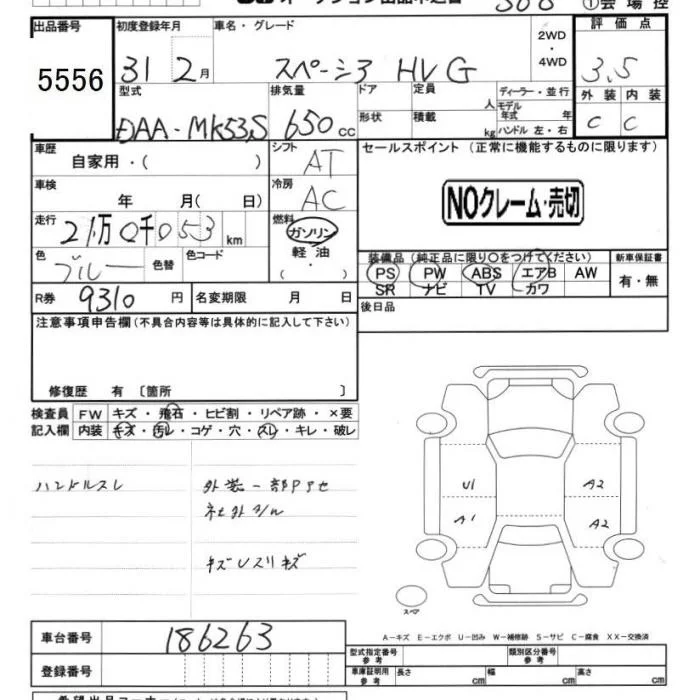 オークション出品申込書
①会場控
出品番号 初度登録年月 車名・グレード 2WD ・ 4WD 評価点
5556 31 2月 スペーシア HV G 3.5
型式 排気量 ドア 定員 人 ディーラー・並行 外装 内装
DAA-MK53S 650cc 形状 積載 kg モデル年式 年 ハンドル 左・右 C C
車歴 自家用・( ) シフト AT セールスポイント(正常に機能するものに限ります)
車検 年 月( 日) 冷房 AC NOクレーム・売切
走行 2万0千053km 燃料 ガソリン 軽油 ( ・ )
色 ブルー 色替 色コード 装備品(純正品に限り○をつけてください) 新車保証書
PS PW ABS エアB AW 有・無
SR ナビ TV カワ
R券 9310円 名変期限 月 日 後日品
注意事項申告欄(不具合内容等は具体的に記入して下さい)
修復歴 有〔箇所 〕
検査員 FW キズ・飛石・ヒビ割・リペア跡・×要
記入欄 内装 キズ・汚レ・コゲ・穴・スレ・キレ・破レ
ハンドルスレ 外装一部
社外
キズUスリキズ
U1 A2
A1 A2
スペア
A-キズ E-エクボ U-凹み W-補修跡 S-サビ C-腐食 XX-交換済
車台番号 186263
型式指定番号 参考 類別区分番号 参考
登録番号 車庫証明用 参考 長さ cm 幅 cm 高さ cm